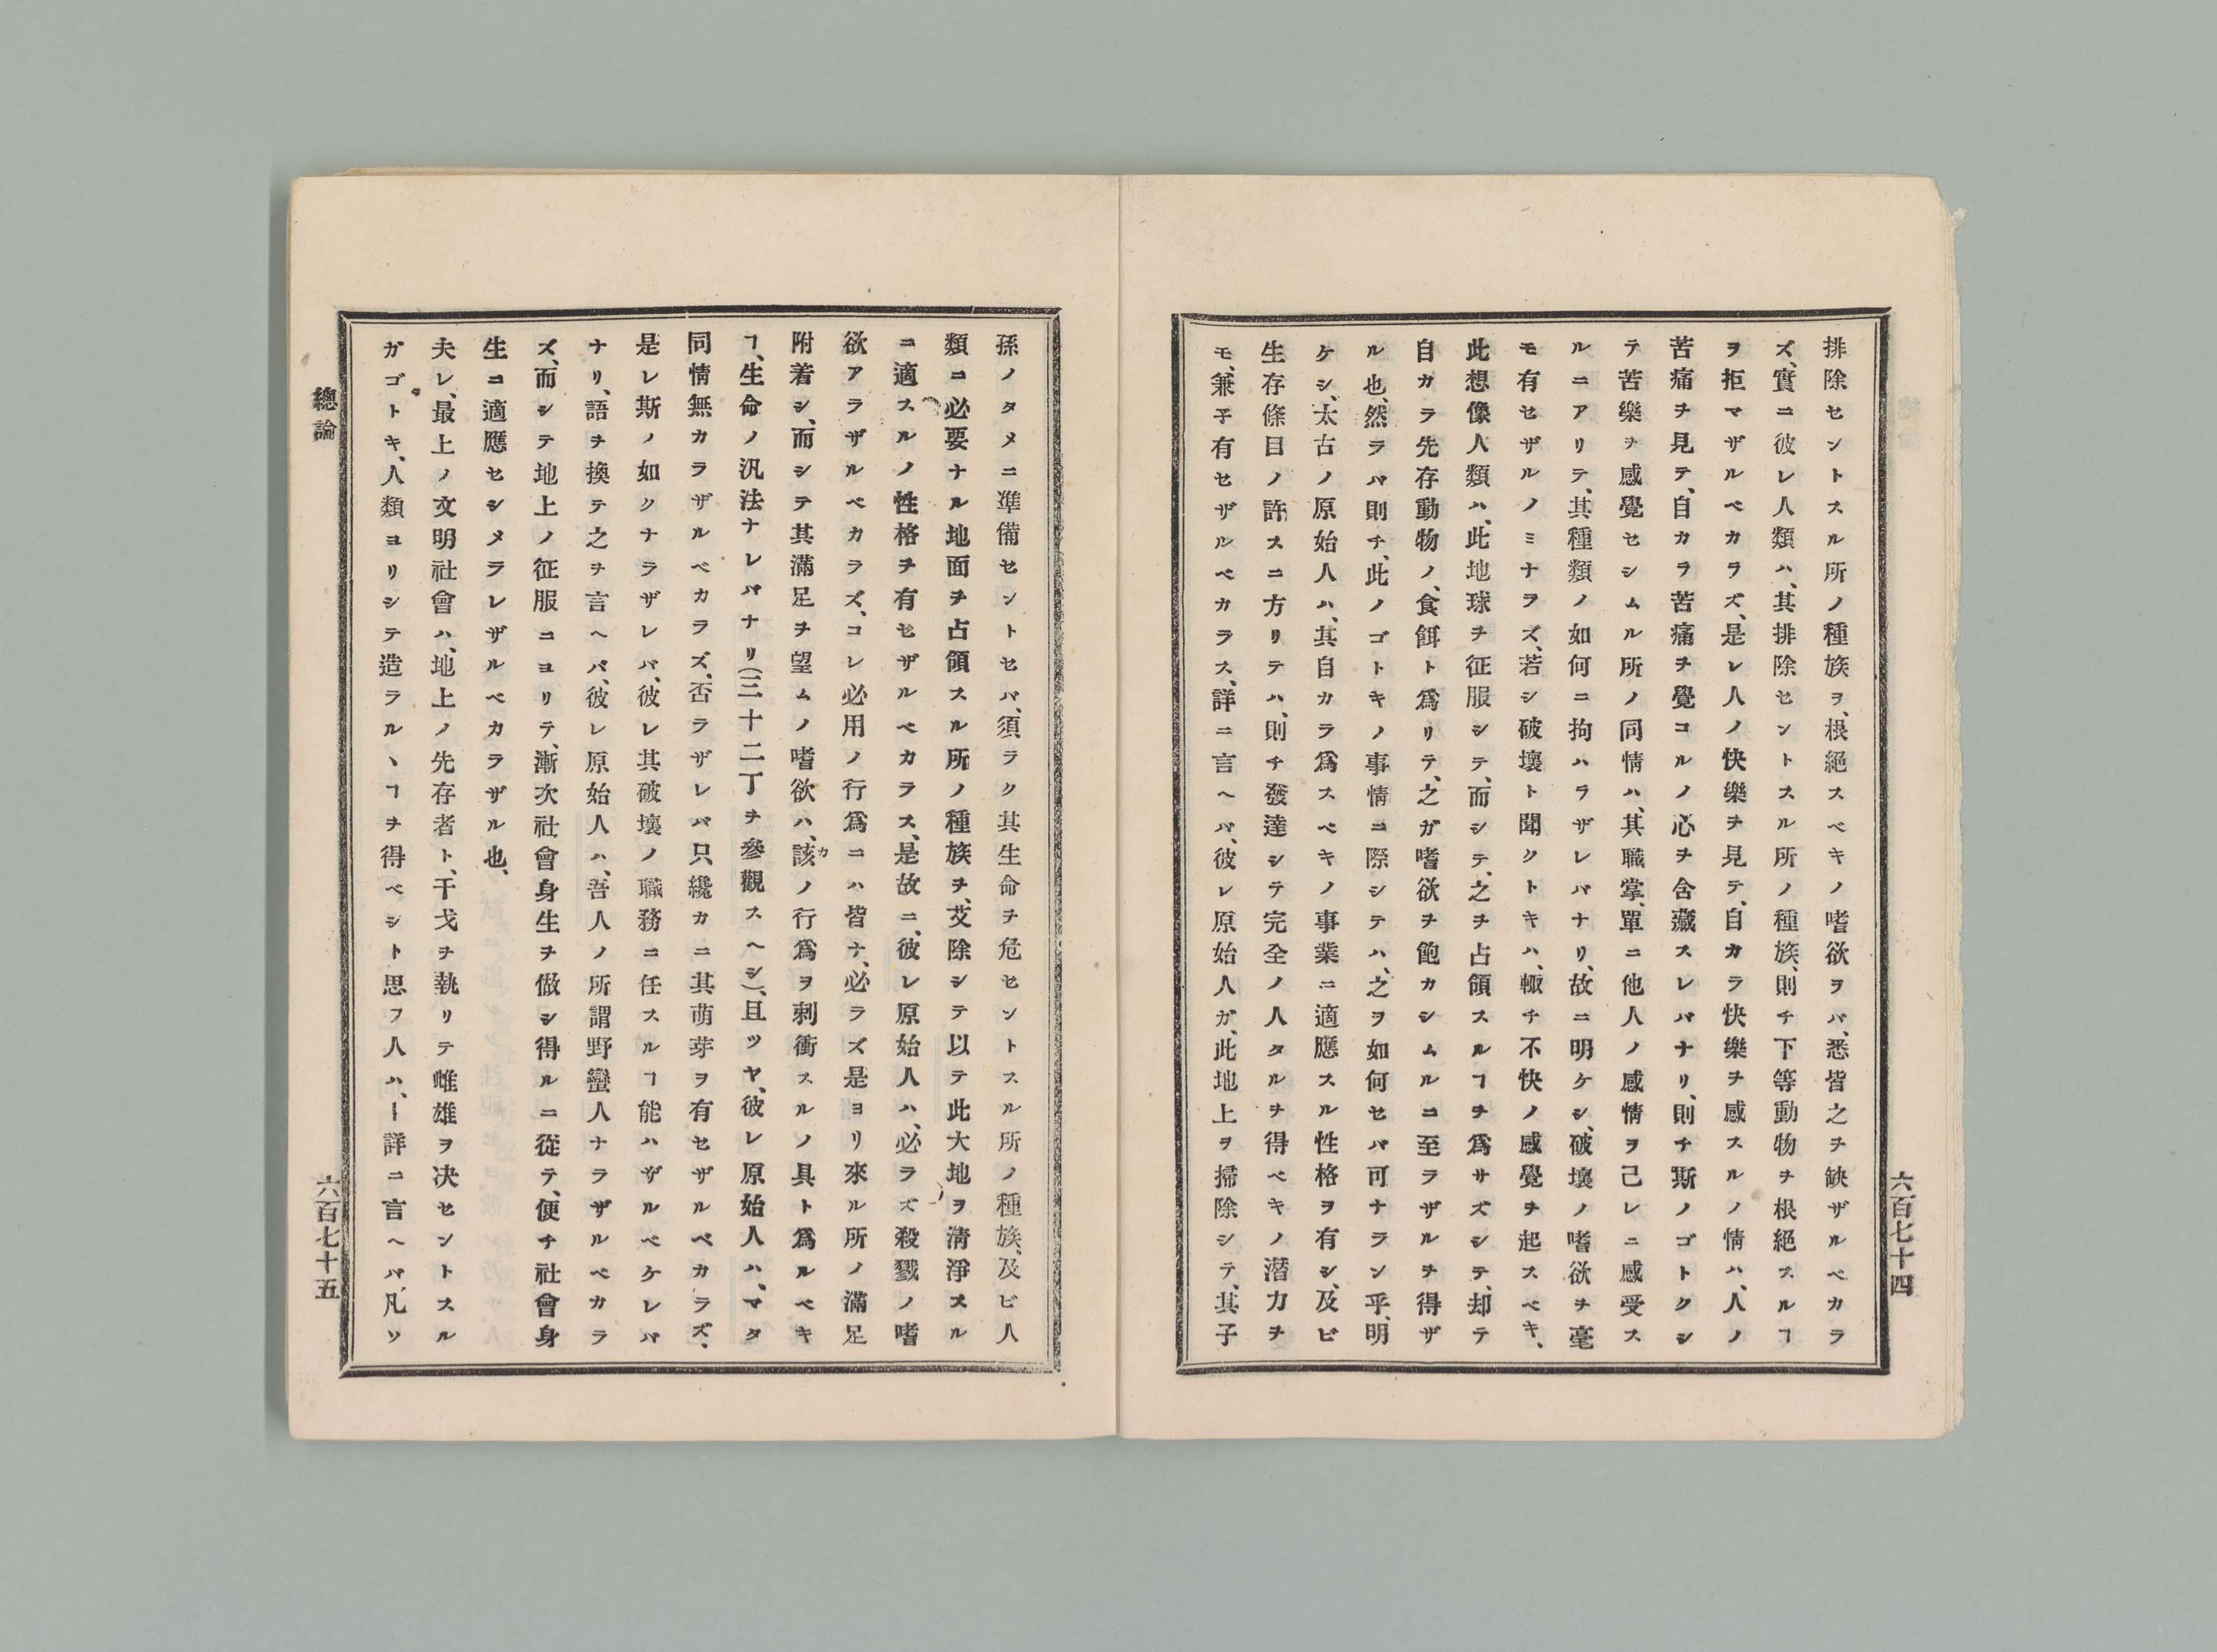 六百七十四
排除セントスル所ノ種族ヲ、根絕スベキノ嗜欲ヲバ、悉皆之ヲ缺ザルベカラ
ズ、實ニ彼レ人類ハ、其排除セントスル所ノ種族、則チ下等動物ヲ根絕スルヿ
ヲ拒マザルベカラズ、是レ人ノ快樂ヲ見テ、自カラ快樂ヲ感スルノ情ハ、人ノ
苦痛ヲ見テ、自カラ苦痛ヲ覺コルノ心ヲ含藏スレバナリ、則チ斯ノゴトクシ
テ苦樂ヲ感覺セシムル所ノ同情ハ、其職掌、單ニ他人ノ感情ヲ己レニ感受ス
ルニアリテ、其種類ノ如何ニ拘ハラザレバナリ、故ニ明ケシ、破壞ノ嗜欲ヲ毫
モ有セザルノミナラズ、若シ破壞ト聞クトキハ、輙チ不快ノ感覺ヲ起スベキ、
此想像人類ハ、此地球ヲ征服シテ、而シテ、之ヲ占領スルヿヲ爲サズシテ、却テ
自カラ先存動物ノ、食餌ト爲リテ、之ガ嗜欲ヲ飽カシムルニ至ラザルヲ得ザ
ル也、然ラバ則チ、此ノゴトキノ事情ニ際シテハ、之ヲ如何セバ可ナラン乎、明
ケシ、太古ノ原始人ハ、其自カラ爲スベキノ事業ニ適應スル性格ヲ有シ、及ビ
生存條目ノ許スニ方リテハ、則チ發達シテ完全ノ人タルヲ得ベキノ潛力ヲ
モ、兼子有セザルベカラス、詳ニ言ヘバ、彼レ原始人ガ、此地上ヲ掃除シテ、其子
孫ノタメニ準備セントセバ、須ラク其生命ヲ危セントスル所ノ種族、及ビ人
類ニ必要ナル地面ヲ占領スル所ノ種族ヲ、芟除シテ以テ此大地ヲ清淨スル
ニ適スルノ性格ヲ有セザルベカラス、是故ニ、彼レ原始人ハ、必ラズ殺戮ノ嗜
欲アラザルベカラズ、コレ必用ノ行爲ニハ皆ナ、必ラズ是ヨリ來ル所ノ滿足
附着シ、而シテ其滿足ヲ望ムノ嗜欲ハ、該カノ行爲ヲ刺衝スルノ具ト爲ルベキ
ヿ、生命ノ汎法ナレバナリ(三十二丁ヲ參觀スヘシ)、且ツヤ、彼レ原始人ハ、マタ
同情無カラザルベカラズ、否ラザレバ只纔カニ其萌芽ヲ有セザルベカラズ、
是レ斯ノ如クナラザレバ、彼レ其破壞ノ職務ニ任スルヿ能ハザルベケレバ
ナリ、語ヲ換テ之ヲ言ヘバ、彼レ原始人ハ、吾人ノ所謂野蠻人ナラザルベカラ
ズ、而シテ地上ノ征服ニヨリテ、漸次社會身生ヲ做シ得ルニ從テ、便チ社會身
生ニ適應セシメラレザルベカラザル也、
夫レ、最上ノ文明社會ハ、地上ノ先存者ト、干戈ヲ執リテ雌雄ヲ决セントスル
ガゴトキ、人類ヨリシテ造ラルヽヿヲ得ベシト思フ人ハ、ー詳ニ言ヘバ、凡ソ
總論
六百七十五